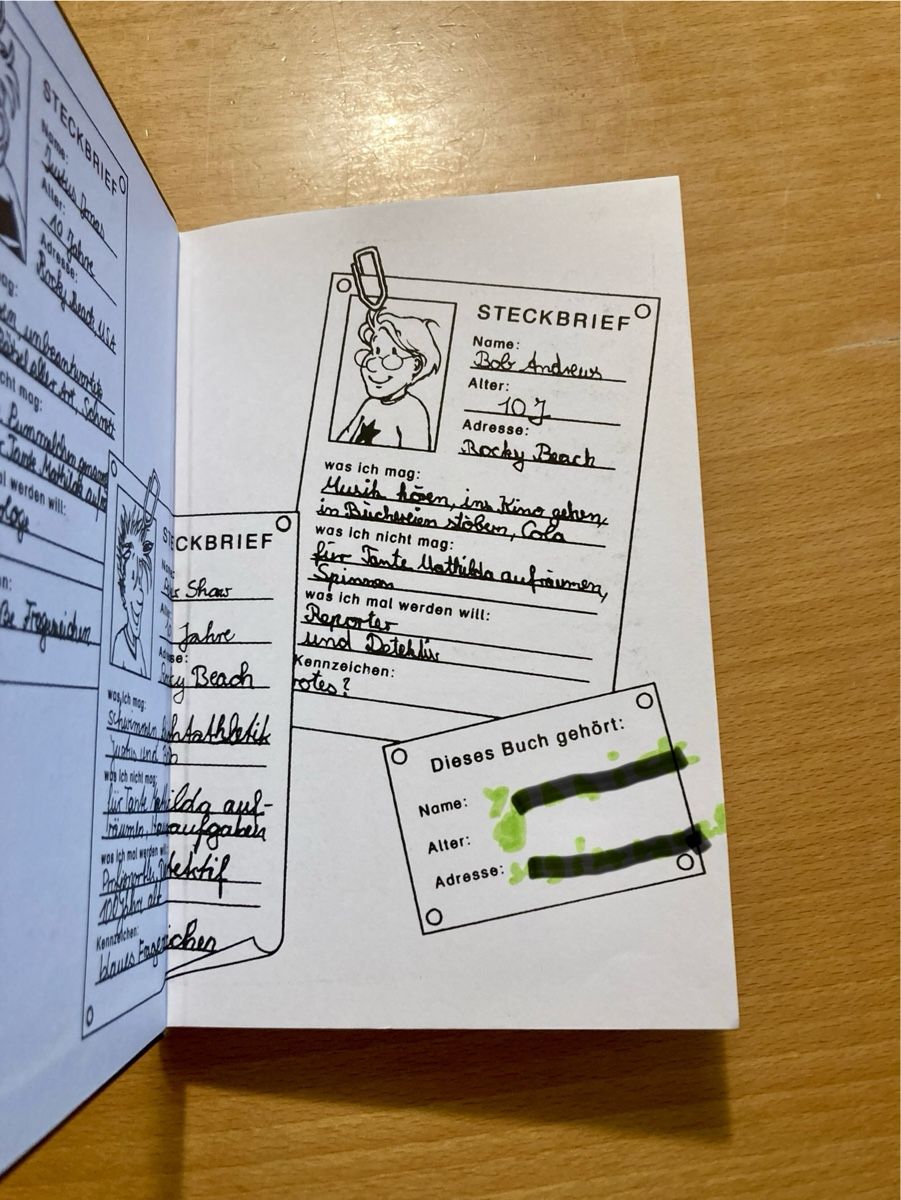 STECKBRIEF
Name:
Justus Jonas
Alter:
10 Jahre
Adresse:
Rocky Beach, USA
mag:
unbeantwortete
aller Art, Schrott
cht mag:
Pummelchen genannt
Tante Mathilda aufr
al werden will:
ology
n:
ße Fragezeichen
STECKBRIEF
Name:
Shaw
Alter:
10 Jahre
Adresse:
Rocky Beach
was ich mag:
schwimmen, Leichtathletik
Justus und Bob
was ich nicht mag:
für Tante Mathilda auf-
räumen, Hausaufgaben
was ich mal werden will:
Profisportler, Detektif
100 Jahre alt
Kennzeichen:
blaues Fragezeichen
STECKBRIEF
Name:
Bob Andrews
Alter:
10 J
Adresse:
Rocky Beach
was ich mag:
Musik hören, ins Kino gehen,
in Büchereien stöbern, Cola
was ich nicht mag:
für Tante Mathilda aufräumen,
Spinnen
was ich mal werden will:
Reporter
und Detektiv
Kennzeichen:
rotes ?
Dieses Buch gehört:
Name:
Alter:
Adresse: